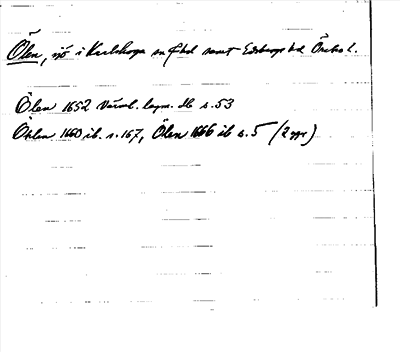 Ölen, sjö i Karlskoga sn o hd samt Edsbergs hd Örebro l.
Ölen 1652 Värml. lagm. db s. 53
Öhlen 1660 ib. s. 167, Ölen 1666 ib s. 5 (2 ggr)